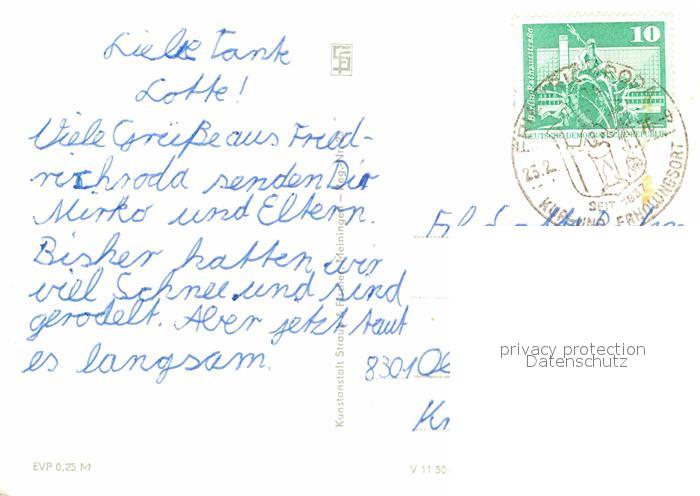 Liebe Tante
Lotte!
Viele Grüße aus Fried-
richroda senden Dir
Mirko und Eltern.
Bisher hatten wir
viel Schnee und sind
gerodelt. Aber jetzt taut
es langsam.
EVP 0,25 M
Kunstanstalt Straub & Fischer Meiningen – Reg.-Nr.
V 11 50
10
Berlin-Rathausstraße
DEUTSCHE DEMOKRATISCHE REPUBLIK
23.2.
SEIT 1837
KUR- UND ERHOLUNGSORT
8301
privacy protection
Datenschutz